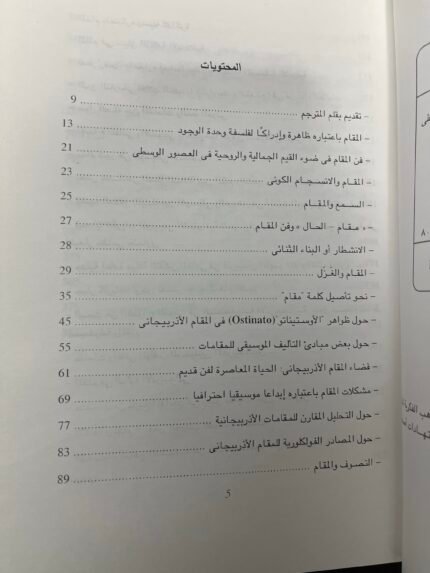 المحتويات
- تقديم بقلم المترجم ........ 9
- المقام باعتباره ظاهرة وإدراكًا لفلسفة وحدة الوجود ........ 13
- فن المقام فى ضوء القيم الجمالية والروحية فى العصور الوسطى ........ 21
- المقام والانسجام الكونى ........ 23
- السمع والمقام ........ 25
- « مقام - الحال » وفن المقام ........ 27
- الانشطار أو البناء الثنائى ........ 28
- المقام والغَزَل ........ 29
- نحو تأصيل كلمة "مقام" ........ 35
- حول ظواهر "الأوستيناتو" (Ostinato) فى المقام الأذربيجانى ........ 45
- حول بعض مبادئ التأليف الموسيقى للمقامات ........ 55
- فضاء المقام الأذربيجانى: الحياة المعاصرة لفن قديم ........ 61
- مشكلات المقام باعتباره إبداعا موسيقيا احترافيا ........ 69
- حول التحليل المقارن للمقامات الأذربيجانية ........ 77
- حول المصادر الفولكلورية للمقام الأذربيجانى ........ 83
- التصوف والمقام ........ 89
5